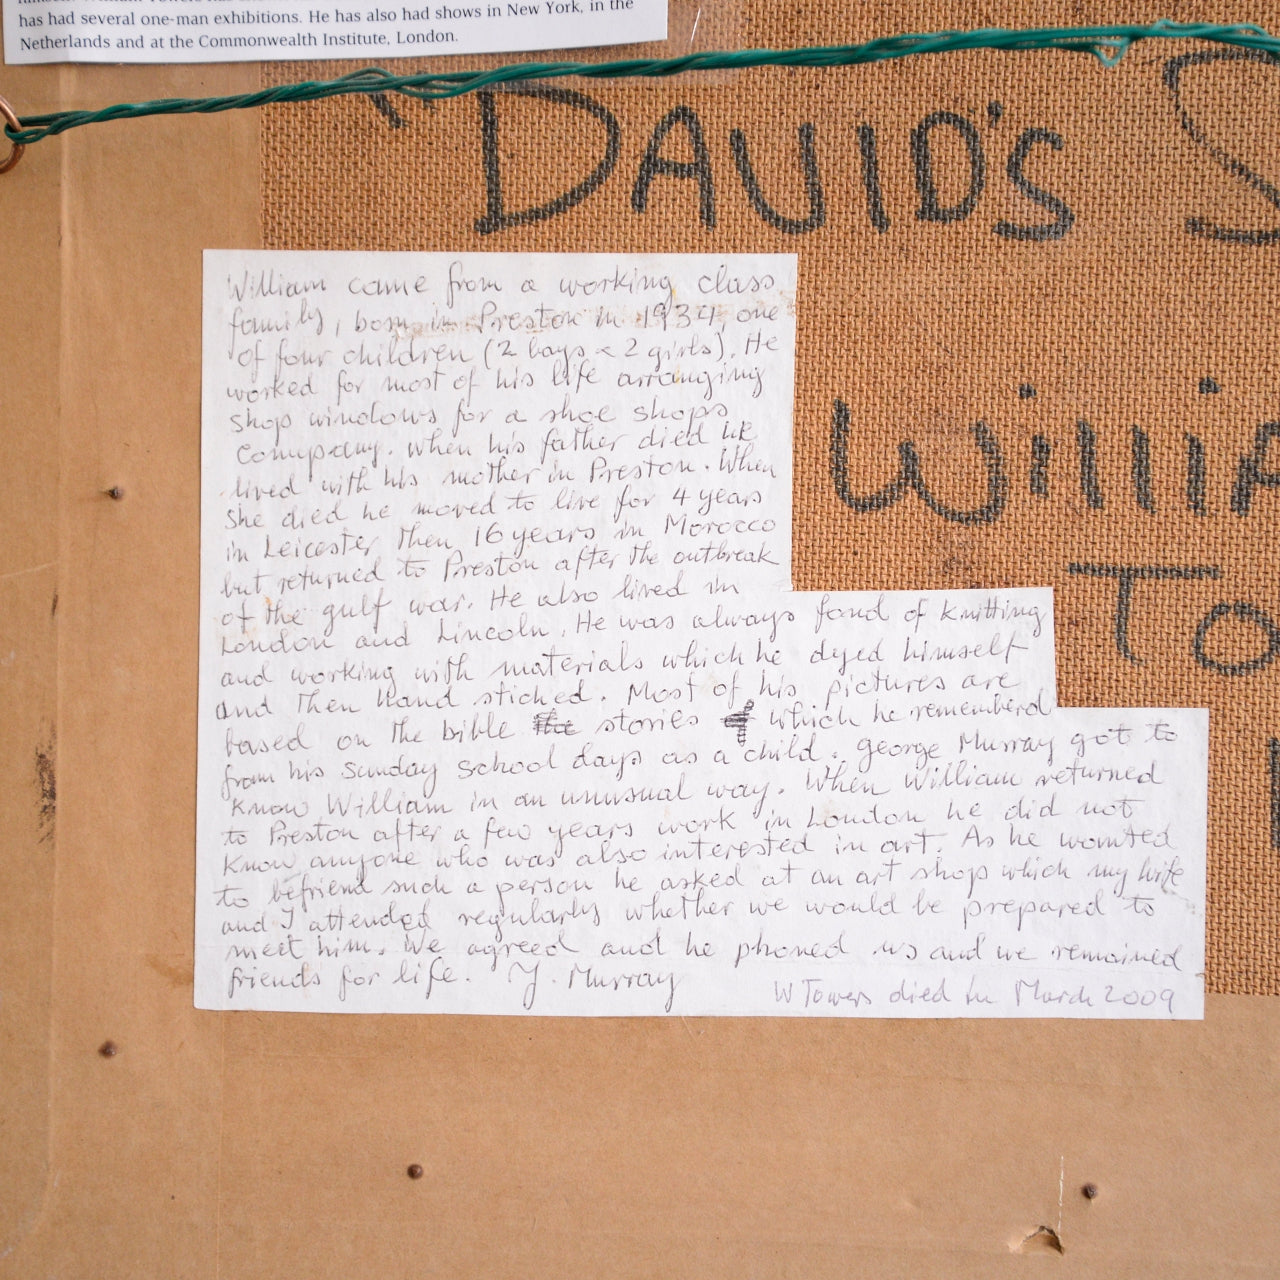 has had several one-man exhibitions. He has also had shows in New York, in the
Netherlands and at the Commonwealth Institute, London.
"DAVID'S S
WILLIA
TO
William came from a working class
family, born in Preston in 1934, one
of four children (2 boys & 2 girls). He
worked for most of his life arranging
shop windows for a shoe shops
Company. When his father died he
lived with his mother in Preston. When
she died he moved to live for 4 years
in Leicester then 16 years in Morocco
but returned to Preston after the outbreak
of the gulf war. He also lived in
London and Lincoln. He was always fond of knitting
and working with materials which he dyed himself
and then hand stiched. Most of his pictures are
based on the bible stories which he rememberd
from his Sunday School days as a child. George Murray got to
know William in an unusual way. When William returned
to Preston after a few years work in London he did not
know anyone who was also interested in art. As he wanted
to befriend such a person he asked at an art shop which my wife
and I attended regularly whether we would be prepared to
meet him. We agreed and he phoned us and we remained
friends for life. Murray
W Towers died in March 2009